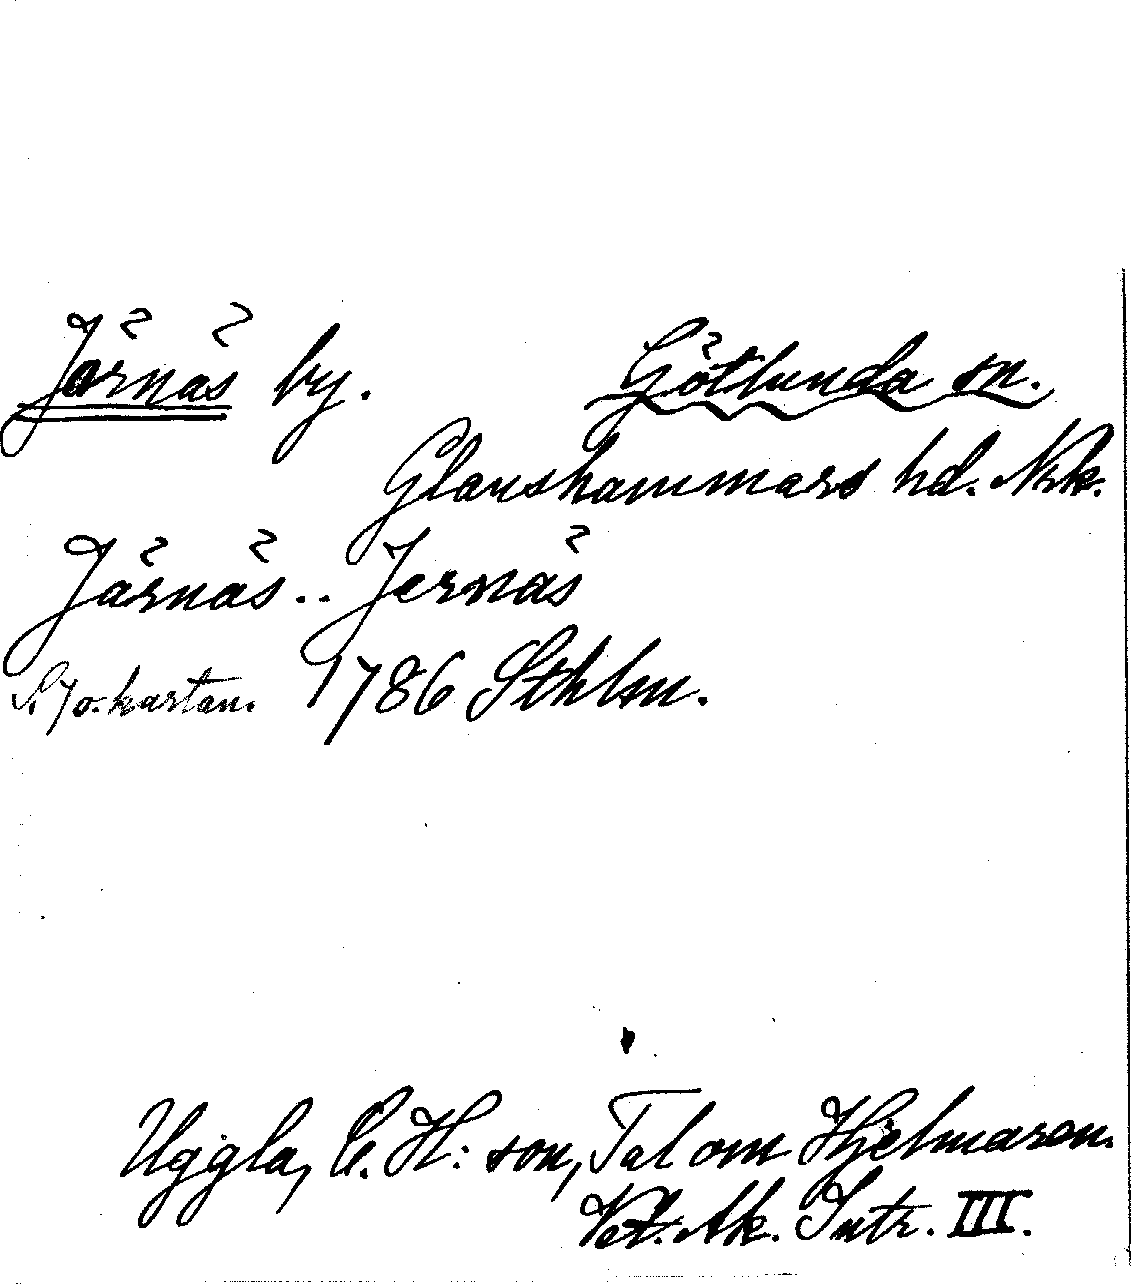 Järnäs by. Götlunda sn.
Glanshammars hd. Nrk.
Järnäs .. Jernäs
S. 70. kartan. 1786 Sthlm.
Uggla, C. H:son, Tal om Hjelmaren.
Vet. Ak. Intr. III.